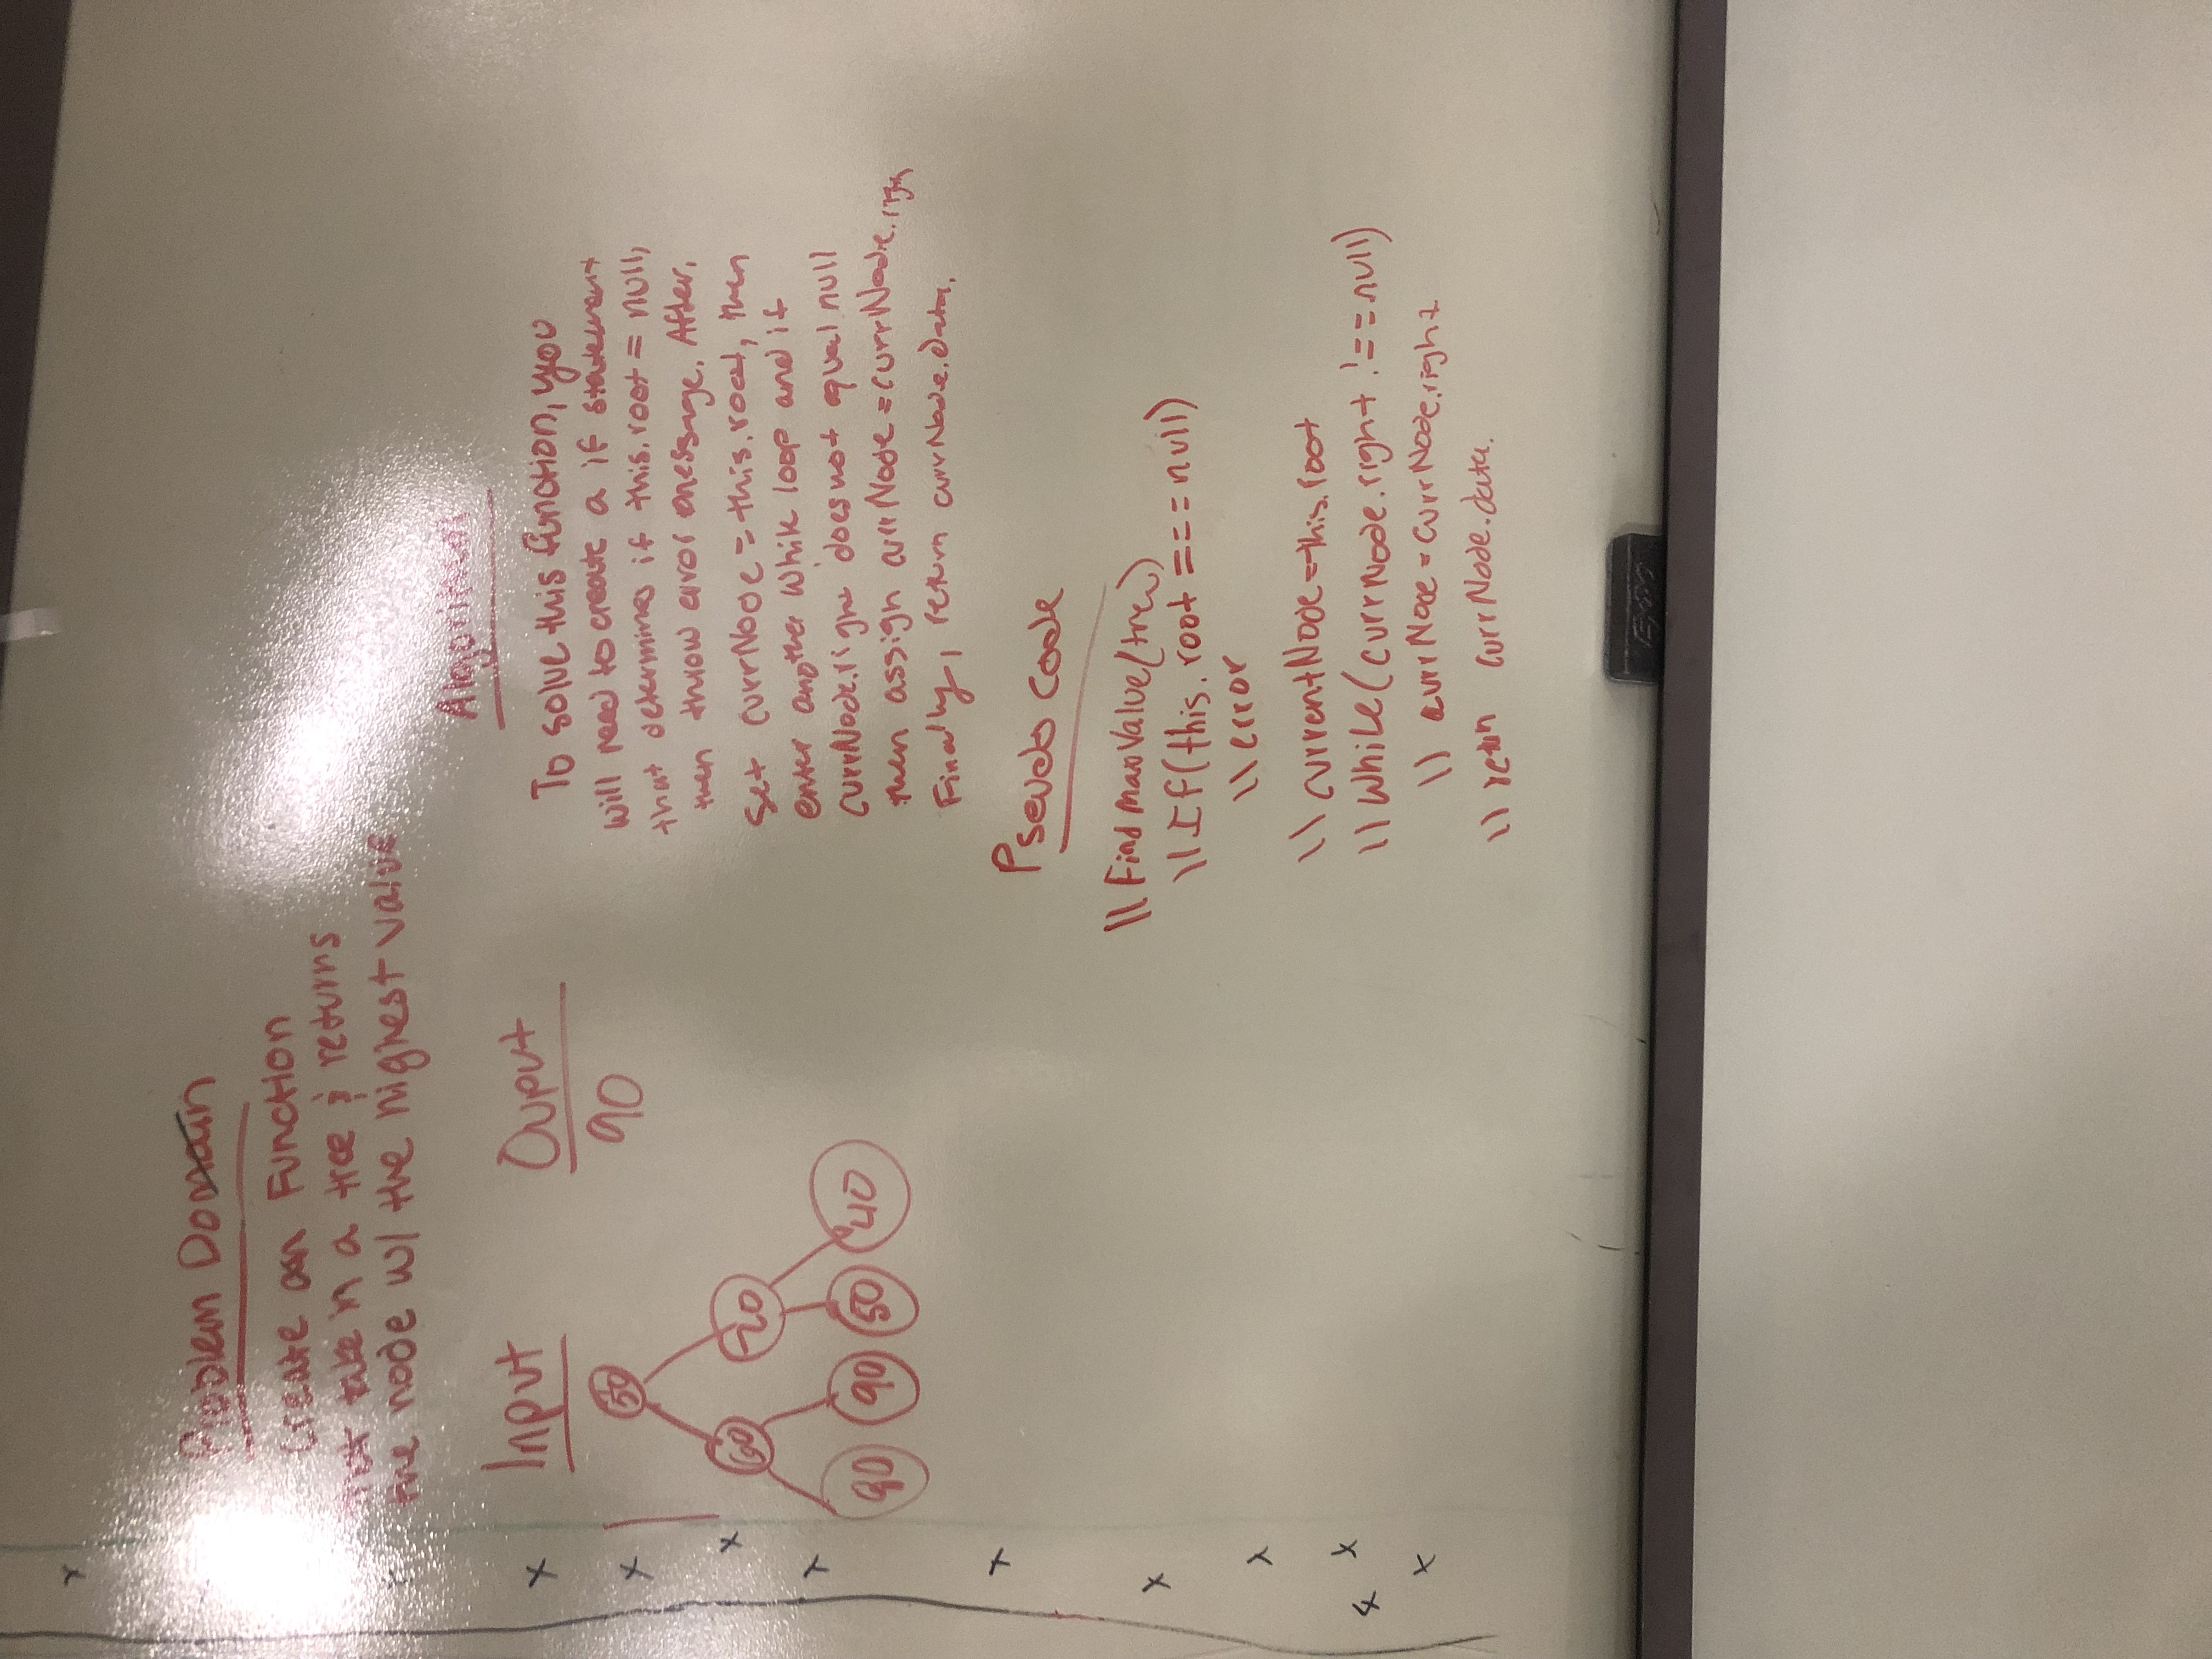 Problem Domain
Create an Function
that take in a tree & returns
the node w/ the highest value
Input
50
60
40
90
50
40
Ouput
90
Algorithm
To solve this function, you
will need to create a if statement
that determines if this.root = null,
then throw error message. After,
set currNode = this.root, then
enter another while loop and if
currNode.right does not equal null
then assign currNode = currNode.right
Finally, return currNode.data.
Pseudo Code
\\ Find maxValue(tree)
\\ If(this.root === null)
\\ error
\\ currentNode = this.root
\\ While(currNode.right !== null)
\\ currNode = currNode.right
\\ return currNode.data.